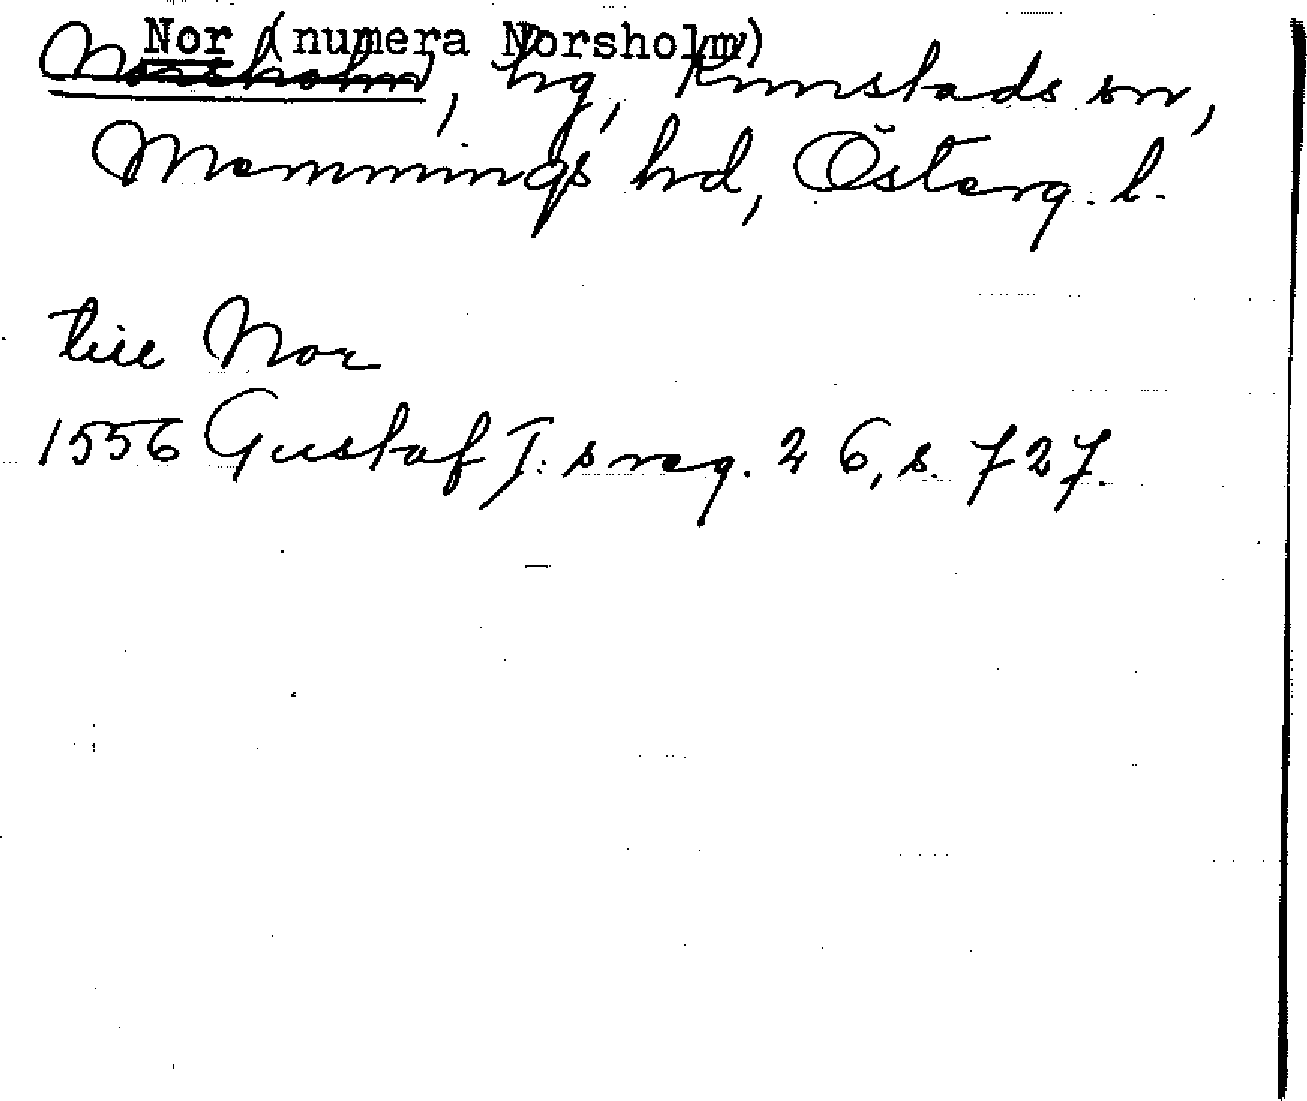 Nor (numera Norsholm)
Norsholm, hg, Kimstads sn,
Memmings hd, Österg. l.
till Nor
1556 Gustaf I:s reg. 26, s. 727.